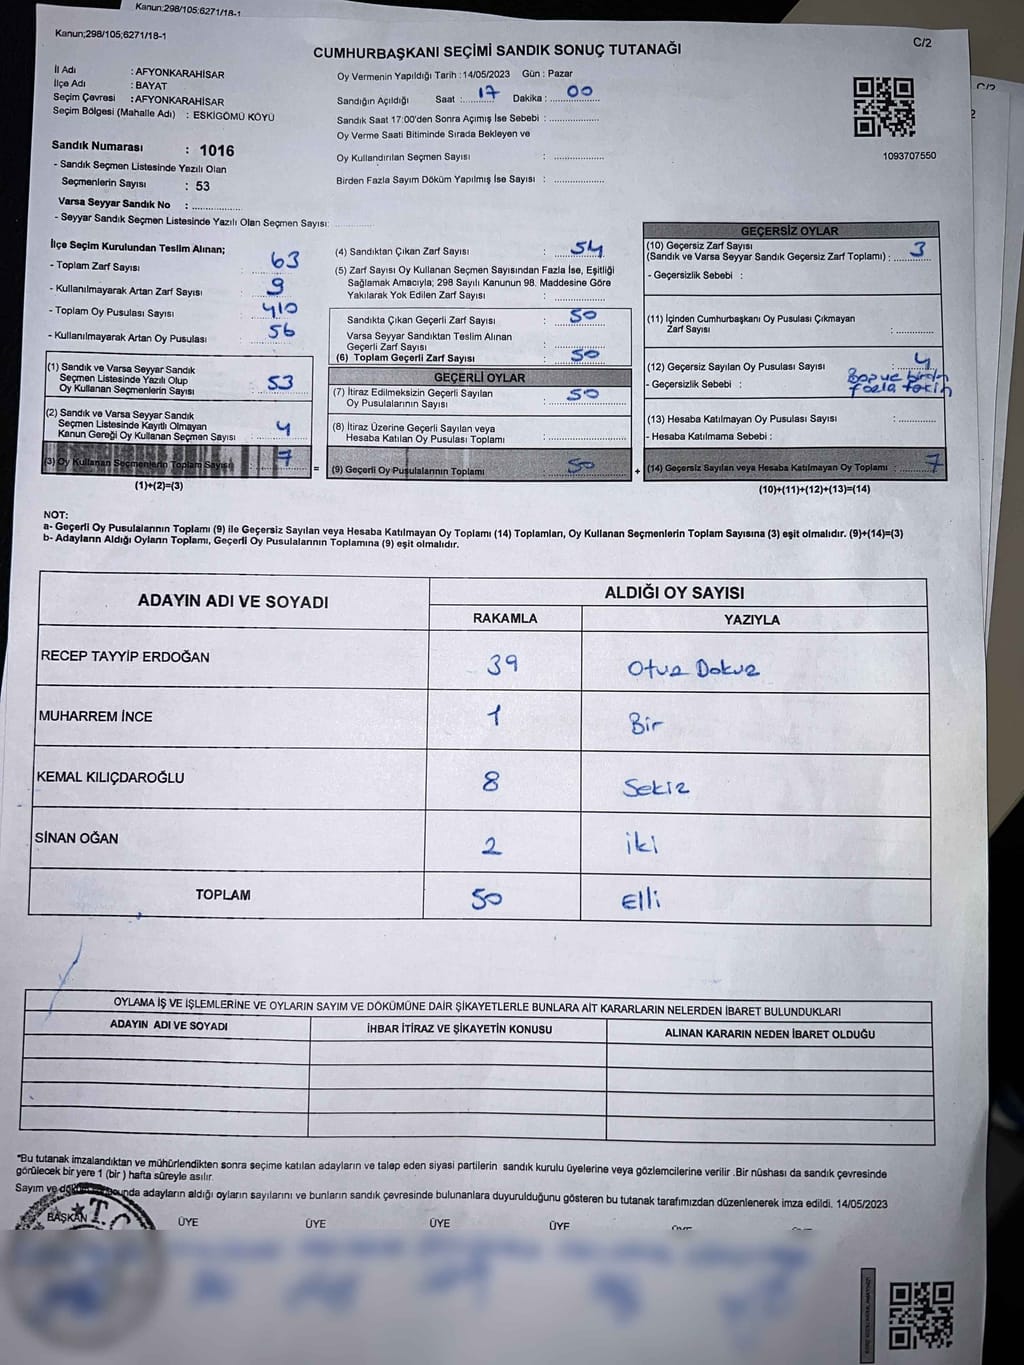 Kanun;298/105;6271/18-1
Kanun;298/105;6271/18-1
C/2
C/2
CUMHURBAŞKANI SEÇİMİ SANDIK SONUÇ TUTANAĞI
İl Adı : AFYONKARAHİSAR
İlçe Adı : BAYAT
Seçim Çevresi : AFYONKARAHİSAR
Seçim Bölgesi (Mahalle Adı) : ESKİGÖMÜ KÖYÜ
Oy Vermenin Yapıldığı Tarih :14/05/2023 Gün : Pazar
Sandığın Açıldığı Saat : 17 Dakika : 00
Sandık Saat 17:00'den Sonra Açımış İse Sebebi :
Oy Verme Saati Bitiminde Sırada Bekleyen ve
Oy Kullandırılan Seçmen Sayısı :
Birden Fazla Sayım Döküm Yapılmış İse Sayısı :
1093707550
Sandık Numarası : 1016
- Sandık Seçmen Listesinde Yazılı Olan
Seçmenlerin Sayısı : 53
Varsa Seyyar Sandık No :
- Seyyar Sandık Seçmen Listesinde Yazılı Olan Seçmen Sayısı:
İlçe Seçim Kurulundan Teslim Alınan;
- Toplam Zarf Sayısı : 63
- Kullanılmayarak Artan Zarf Sayısı : 9
- Toplam Oy Pusulası Sayısı : 410
- Kullanılmayarak Artan Oy Pusulası : 56
(1) Sandık ve Varsa Seyyar Sandık
Seçmen Listesinde Yazılı Olup
Oy Kullanan Seçmenlerin Sayısı : 53
(2) Sandık ve Varsa Seyyar Sandık
Seçmen Listesinde Kayıtlı Olmayan
Kanun Gereği Oy Kullanan Seçmen Sayısı : 4
(3) Oy Kullanan Seçmenlerin Toplam Sayısı : 7
(1)+(2)=(3)
(4) Sandıktan Çıkan Zarf Sayısı : 54
(5) Zarf Sayısı Oy Kullanan Seçmen Sayısından Fazla İse, Eşitliği
Sağlamak Amacıyla; 298 Sayılı Kanunun 98. Maddesine Göre
Yakılarak Yok Edilen Zarf Sayısı :
Sandıkta Çıkan Geçerli Zarf Sayısı : 50
Varsa Seyyar Sandıktan Teslim Alınan
Geçerli Zarf Sayısı :
(6) Toplam Geçerli Zarf Sayısı : 50
GEÇERLİ OYLAR
(7) İtiraz Edilmeksizin Geçerli Sayılan
Oy Pusulalarının Sayısı : 50
(8) İtiraz Üzerine Geçerli Sayılan veya
Hesaba Katılan Oy Pusulası Toplamı :
= (9) Geçerli Oy Pusulalarının Toplamı : 50
GEÇERSİZ OYLAR
(10) Geçersiz Zarf Sayısı
(Sandık ve Varsa Seyyar Sandık Geçersiz Zarf Toplamı) : 3
- Geçersizlik Sebebi :
(11) İçinden Cumhurbaşkanı Oy Pusulası Çıkmayan
Zarf Sayısı :
(12) Geçersiz Sayılan Oy Pusulası Sayısı : 4
- Geçersizlik Sebebi :
fazla
(13) Hesaba Katılmayan Oy Pusulası Sayısı :
- Hesaba Katılmama Sebebi :
+ (14) Geçersiz Sayılan veya Hesaba Katılmayan Oy Toplamı : 7
(10)+(11)+(12)+(13)=(14)
NOT:
a- Geçerli Oy Pusulalarının Toplamı (9) ile Geçersiz Sayılan veya Hesaba Katılmayan Oy Toplamı (14) Toplamları, Oy Kullanan Seçmenlerin Toplam Sayısına (3) eşit olmalıdır. (9)+(14)=(3)
b- Adayların Aldığı Oyların Toplamı, Geçerli Oy Pusulalarının Toplamına (9) eşit olmalıdır.
ADAYIN ADI VE SOYADI ALDIĞI OY SAYISI
RAKAMLA YAZIYLA
RECEP TAYYİP ERDOĞAN 39 Otuz Dokuz
MUHARREM İNCE 1 Bir
KEMAL KILIÇDAROĞLU 8 Sekiz
SİNAN OĞAN 2 iki
TOPLAM 50 Elli
OYLAMA İŞ VE İŞLEMLERİNE VE OYLARIN SAYIM VE DÖKÜMÜNE DAİR ŞİKAYETLERLE BUNLARA AİT KARARLARIN NELERDEN İBARET BULUNDUKLARI
ADAYIN ADI VE SOYADI İHBAR İTİRAZ VE ŞİKAYETİN KONUSU ALINAN KARARIN NEDEN İBARET OLDUĞU
"Bu tutanak imzalandıktan ve mühürlendikten sonra seçime katılan adayların ve talep eden siyasi partilerin sandık kurulu üyelerine veya gözlemcilerine verilir .Bir nüshası da sandık çevresinde
görülecek bir yere 1 (bir ) hafta süreyle asılır.
Sayım ve adayların aldığı oyların sayılarını ve bunların sandık çevresinde bulunanlara duyurulduğunu gösteren bu tutanak tarafımızdan düzenlenerek imza edildi. 14/05/2023
BAŞKAN ÜYE ÜYE ÜYE ÜYE
T.C